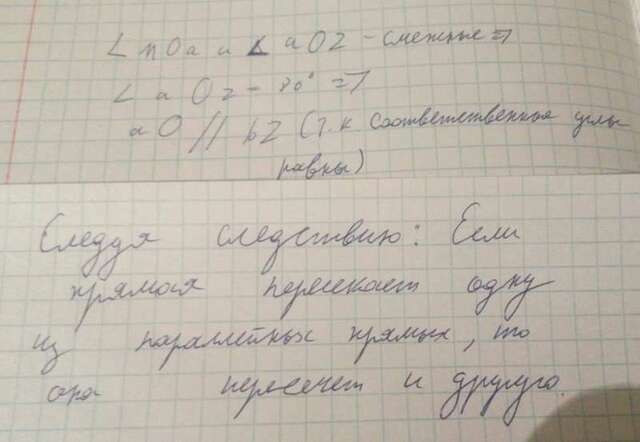 ∠ nOa и ∠ aOz - смежные ⇒
∠ aOz - 80° ⇒
aO // bz (т.к соответственные углы
равны)
Следуя следствию: Если
прямая пересекает одну
из параллельных прямых, то
она пересечет и другую.